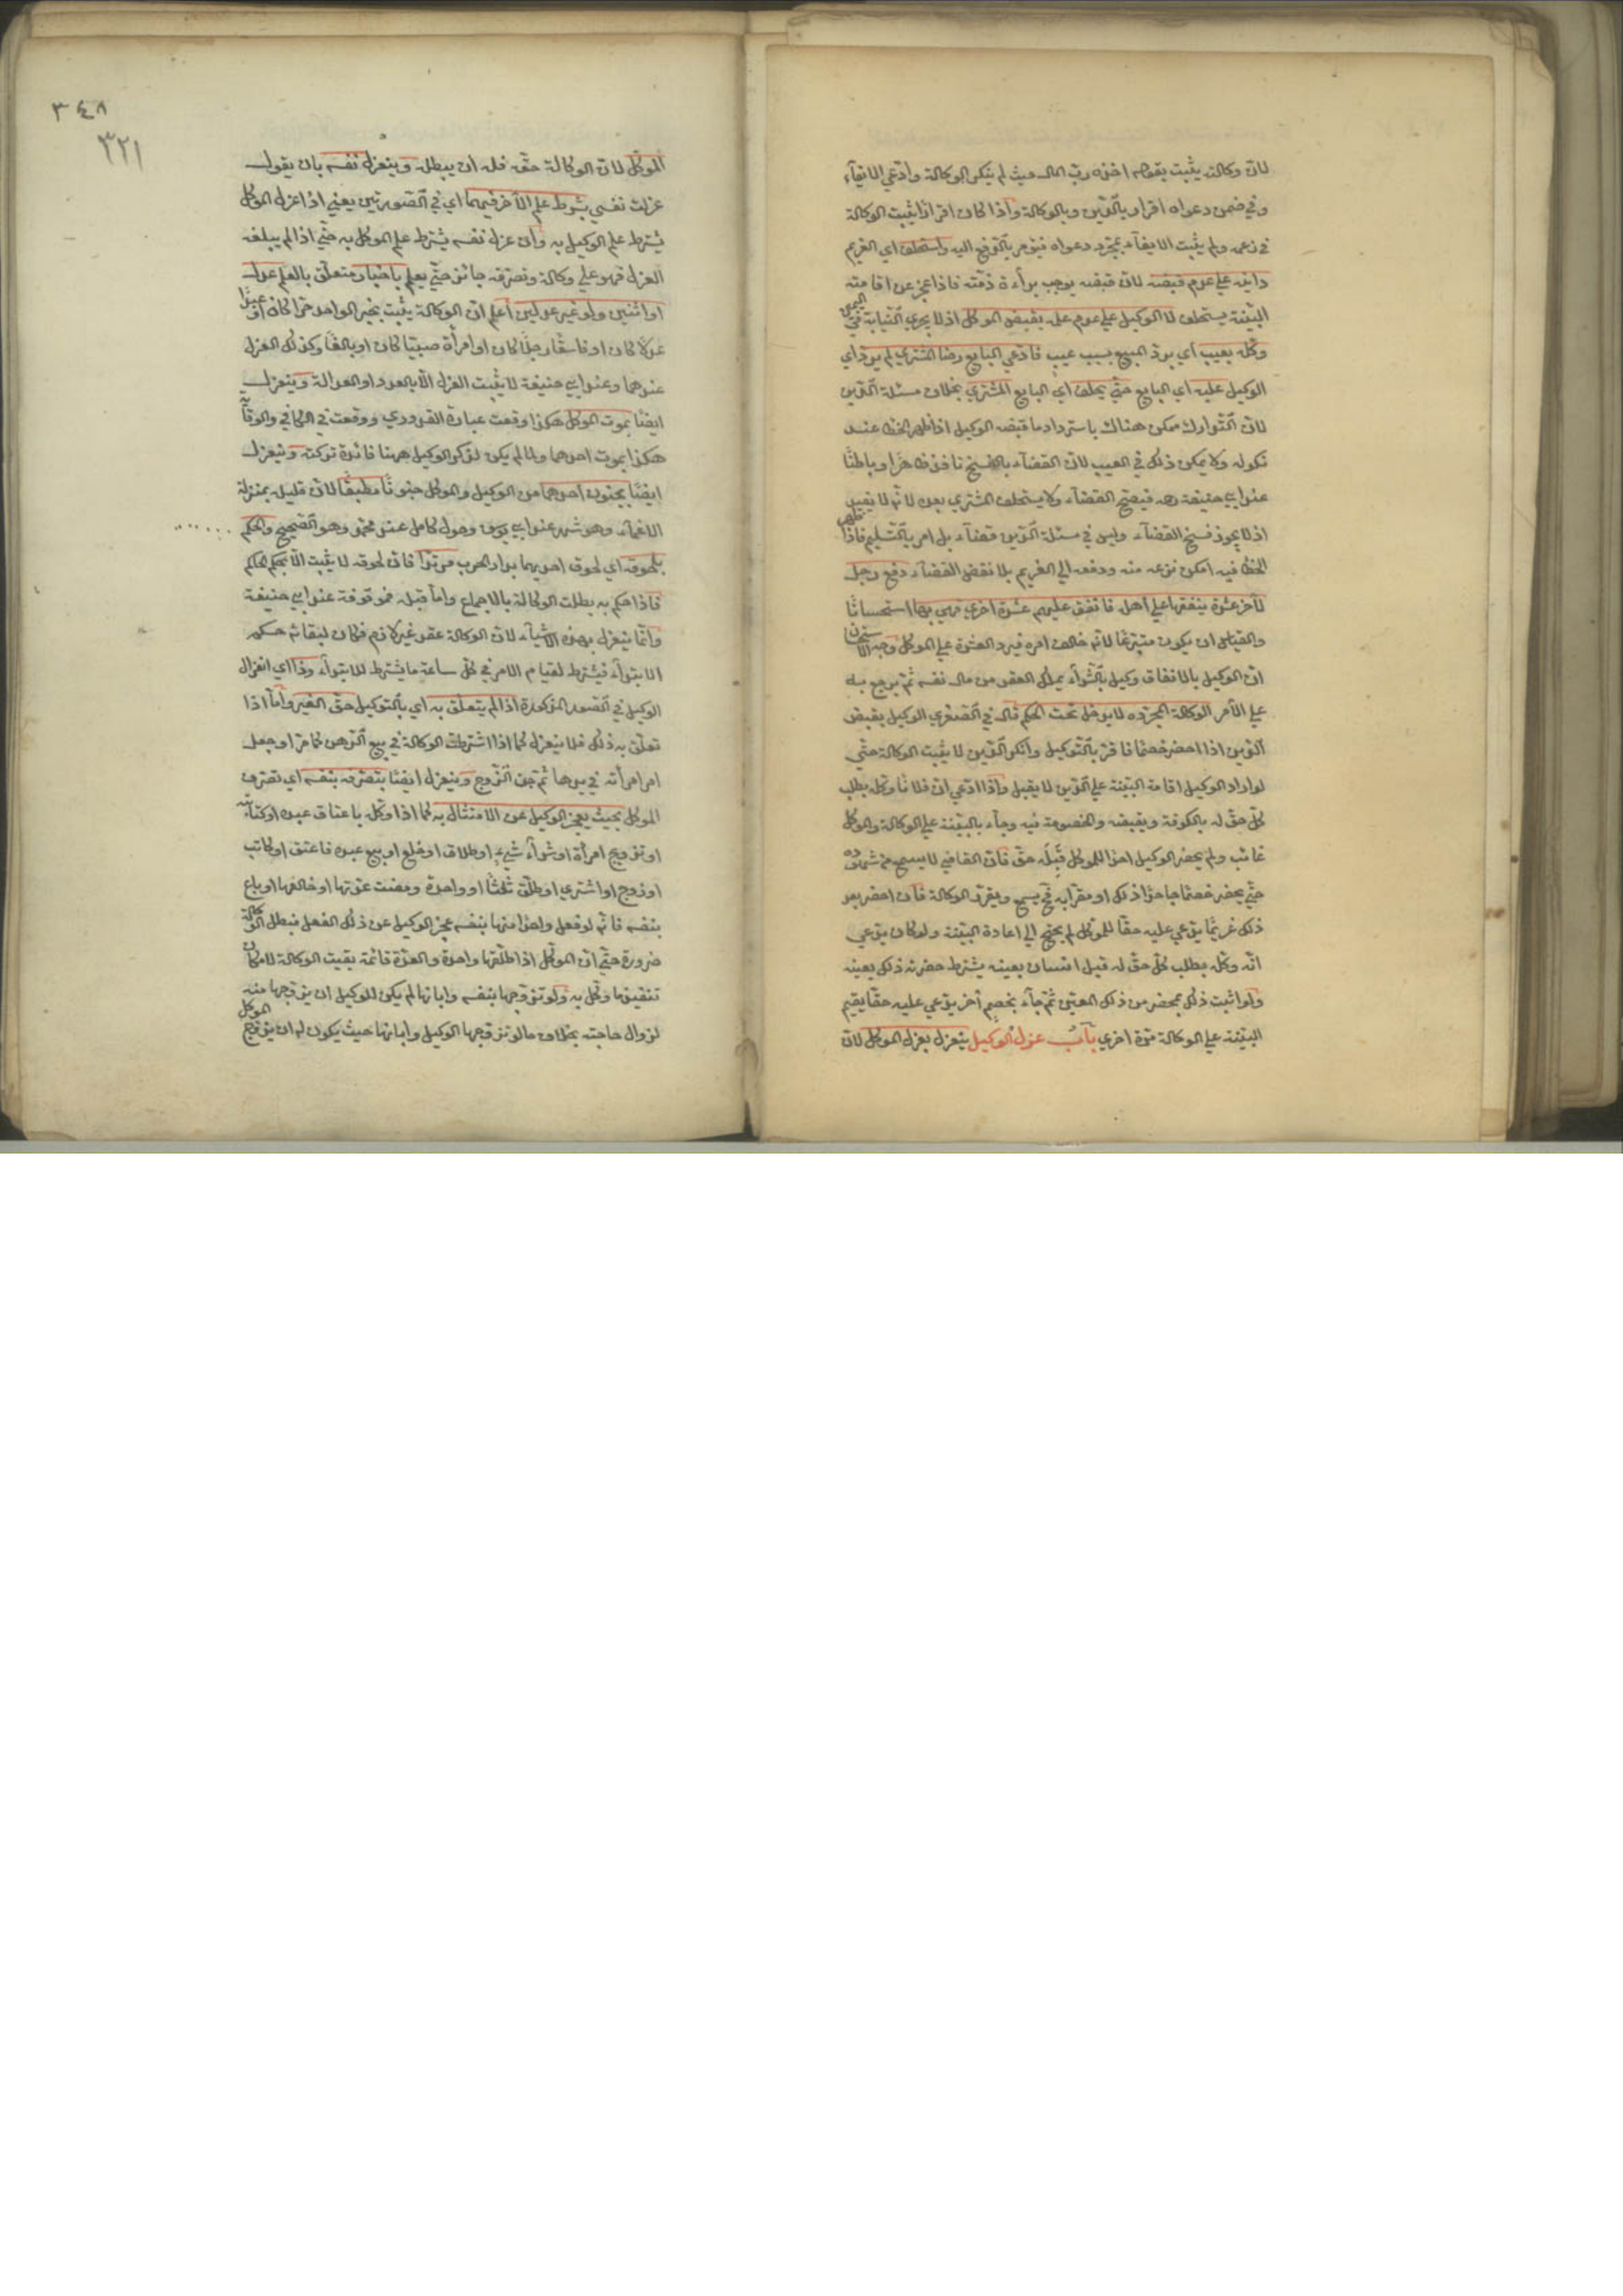 لان وكالته يثبت بقوله اخذه رب المال حيث لم ينكر الوكالة وادعى الايفاء
وفي ضمن دعواه اقرار بالدين وبالوكالة واذا كان اقرارا يثبت الوكالة
في زعمه ولم يثبت الايفاء بمجرد دعواه فيؤمر بالدفع اليه واستحلف اي الغريم
داينه على عدم قبضه لان قبضه يوجب براءة ذمته فاذا عجز عن اقامته
البينة يستحلف لا الوكيل على عدم علمه بقبض الموكل اذ لا يجري النيابة في اليمين
وكله بعيب اي برد المبيع بسبب عيب فادعى البايع رضا المشتري لم يرد اي
الوكيل عليه اي البايع حتى يحلف اي البايع المشتري بخلاف مسئلة الدين
لان التدارك ممكن هناك باسترداد ما قبضه الوكيل اذا ظهر الخطا عند
نكوله ولا يمكن ذلك في العيب لان القضاء بالفسخ نافذ ظاهرا وباطنا
عند ابي حنيفة رحمه فيصح القضاء ولا يستحلف المشتري بعده لانه لا يفيد
اذ لا يجوز فسخ القضاء وليس في مسئلة الدين قضاء بل امر بالتسليم فاذا ظهر
الخطا فيه امكن نزعه منه ودفعه الى الغريم بلا نقض القضاء دفع رجل
لآخر عشرة ينفقها على اهله فانفق عليهم عشرة اخرى فهي بها استحسانا
والقياس ان يكون متبرعا لانه خالف امره فيرد العشرة على الموكل وجه الاستحسان
ان الوكيل بالانفاق وكيل بالشراء يملك العقد من مال نفسه ثم يرجع به
على الآمر الوكالة المجردة لا يدخل تحت الحكم قال في الصغرى الوكيل بقبض
الدين اذا احضر خصما فاقر بالتوكيل وانكر الدين لا يثبت الوكالة حتى
لو اراد الوكيل اقامة البينة على الدين لا يقبل واذا ادعى ان فلانا وكله بطلب
كل حق له بالكوفة وبقبضه والخصومة فيه وجاء بالبينة على الوكالة والموكل
غائب ولم يحضر الوكيل احدا للموكل قبله حق فان القاضي لا يسمع من شهوده
حتى يحضر خصما جاحدا ذلك او مقرا به فح يسمع ويقرر الوكالة فان احضر بعد
ذلك غريما يدعي عليه حقا للموكل لم يحتج الى اعادة البينة ولو كان يدعي
انه وكله بطلب كل حق له قبل انسان بعينه يشترط حضرته ذلك بعينه
ولو اثبت ذلك بمحضر من ذلك المعين ثم جاء بخصم آخر يدعي عليه حقا يقيم
البينة على الوكالة مرة اخرى باب عزل الوكيل ينعزل بعزل الموكل لان
٣٤٨
٣٢١
الموكل لان الوكالة حقه فله ان يبطله وينعزل نفسه بان يقول
عزلت نفسي بشرط علم الآخر فيهما اي في الصورتين يعني اذا عزل الموكل
يشترط علم الوكيل به وان عزل نفسه يشترط علم الموكل به حتى اذا لم يبلغه
العزل فهو على وكالة وتصرفه جائز حتى يعلم باخبار متعلق بالعلم عدل
او اثنين ولو غير عدلين اعلم ان الوكالة يثبت بخبر الواحد حرا كان او عبدا
عدلا كان او فاسقا رجلا كان او امرأة صبيا كان او بالغا وكذلك العزل
عندهما وعند ابي حنيفة لا يثبت العزل الا بالعدد او العدالة وينعزل
ايضا بموت الموكل هكذا وقعت عبارة القدوري ووقعت في الكافي والوقاية
هكذا بموت احدهما ولما لم يكن لذكر الوكيل ههنا فائدة تركته وينعزل
ايضا بجنون احدهما من الوكيل والموكل جنونا مطبقا لان قليله بمنزلة
الاغماء وهو شهر عند ابي يوسف وحول كامل عند محمد وهو الصحيح والحكم
بلحوقه اي لحوق احديهما بدار الحرب مرتدا فان لحوقه لا يثبت الا بحكم الحاكم
فاذا حكم به بطلت الوكالة بالاجماع واما قبله فموقوفة عند ابي حنيفة
وانما ينعزل بهذه الاشياء لان الوكالة عقد غير لازم فكان لبقائه حكم
الابتداء فيشترط لقيام الامر في كل ساعة ما يشترط للابتداء وذا اي انعزال
الوكيل في الصور المذكورة اذا لم يتعلق به اي بالتوكيل حق الغير واما اذا
تعلق به ذلك فلا ينعزل كما اذا اشترطت الوكالة في بيع الرهن كما مر او جعل
امر امرأته في يدها ثم جن الزوج وينعزل ايضا بتصرفه بنفسه اي تصرف
الموكل بحيث يعجز الوكيل عن الامتثال به كما اذا وكل باعتاق عبده او كتابته
او تزويج امرأة او شراء شيء او طلاق او خلع او بيع عبده فاعتق او كاتب
او زوج او اشترى او طلق ثلثا او واحدة ومضت عدتها او خالعها او باع
بنفسه فانه لو فعل واحدا منها بنفسه عجز الوكيل عن ذلك الفعل فبطل الوكالة
ضرورة حتى ان الموكل اذا طلقها واحدة والعدة قائمة بقيت الوكالة لامكان
تنفيذ ما وكل به ولو تزوجها بنفسه وابانها لم يكن للوكيل ان يزوجها منه
لزوال حاجته بخلاف ما لو تزوجها الوكيل وابانها حيث يكون له ان يزوج الموكل